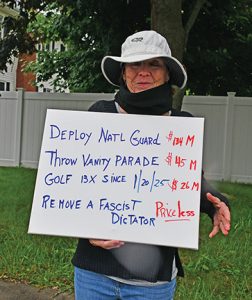 DEPLOY NAT'L GUARD $134 M
THROW VANITY PARADE $45 M
GOLF 13X SINCE 1/20/25 $26 MIL
REMOVE A FASCIST
DICTATOR PRICELESS